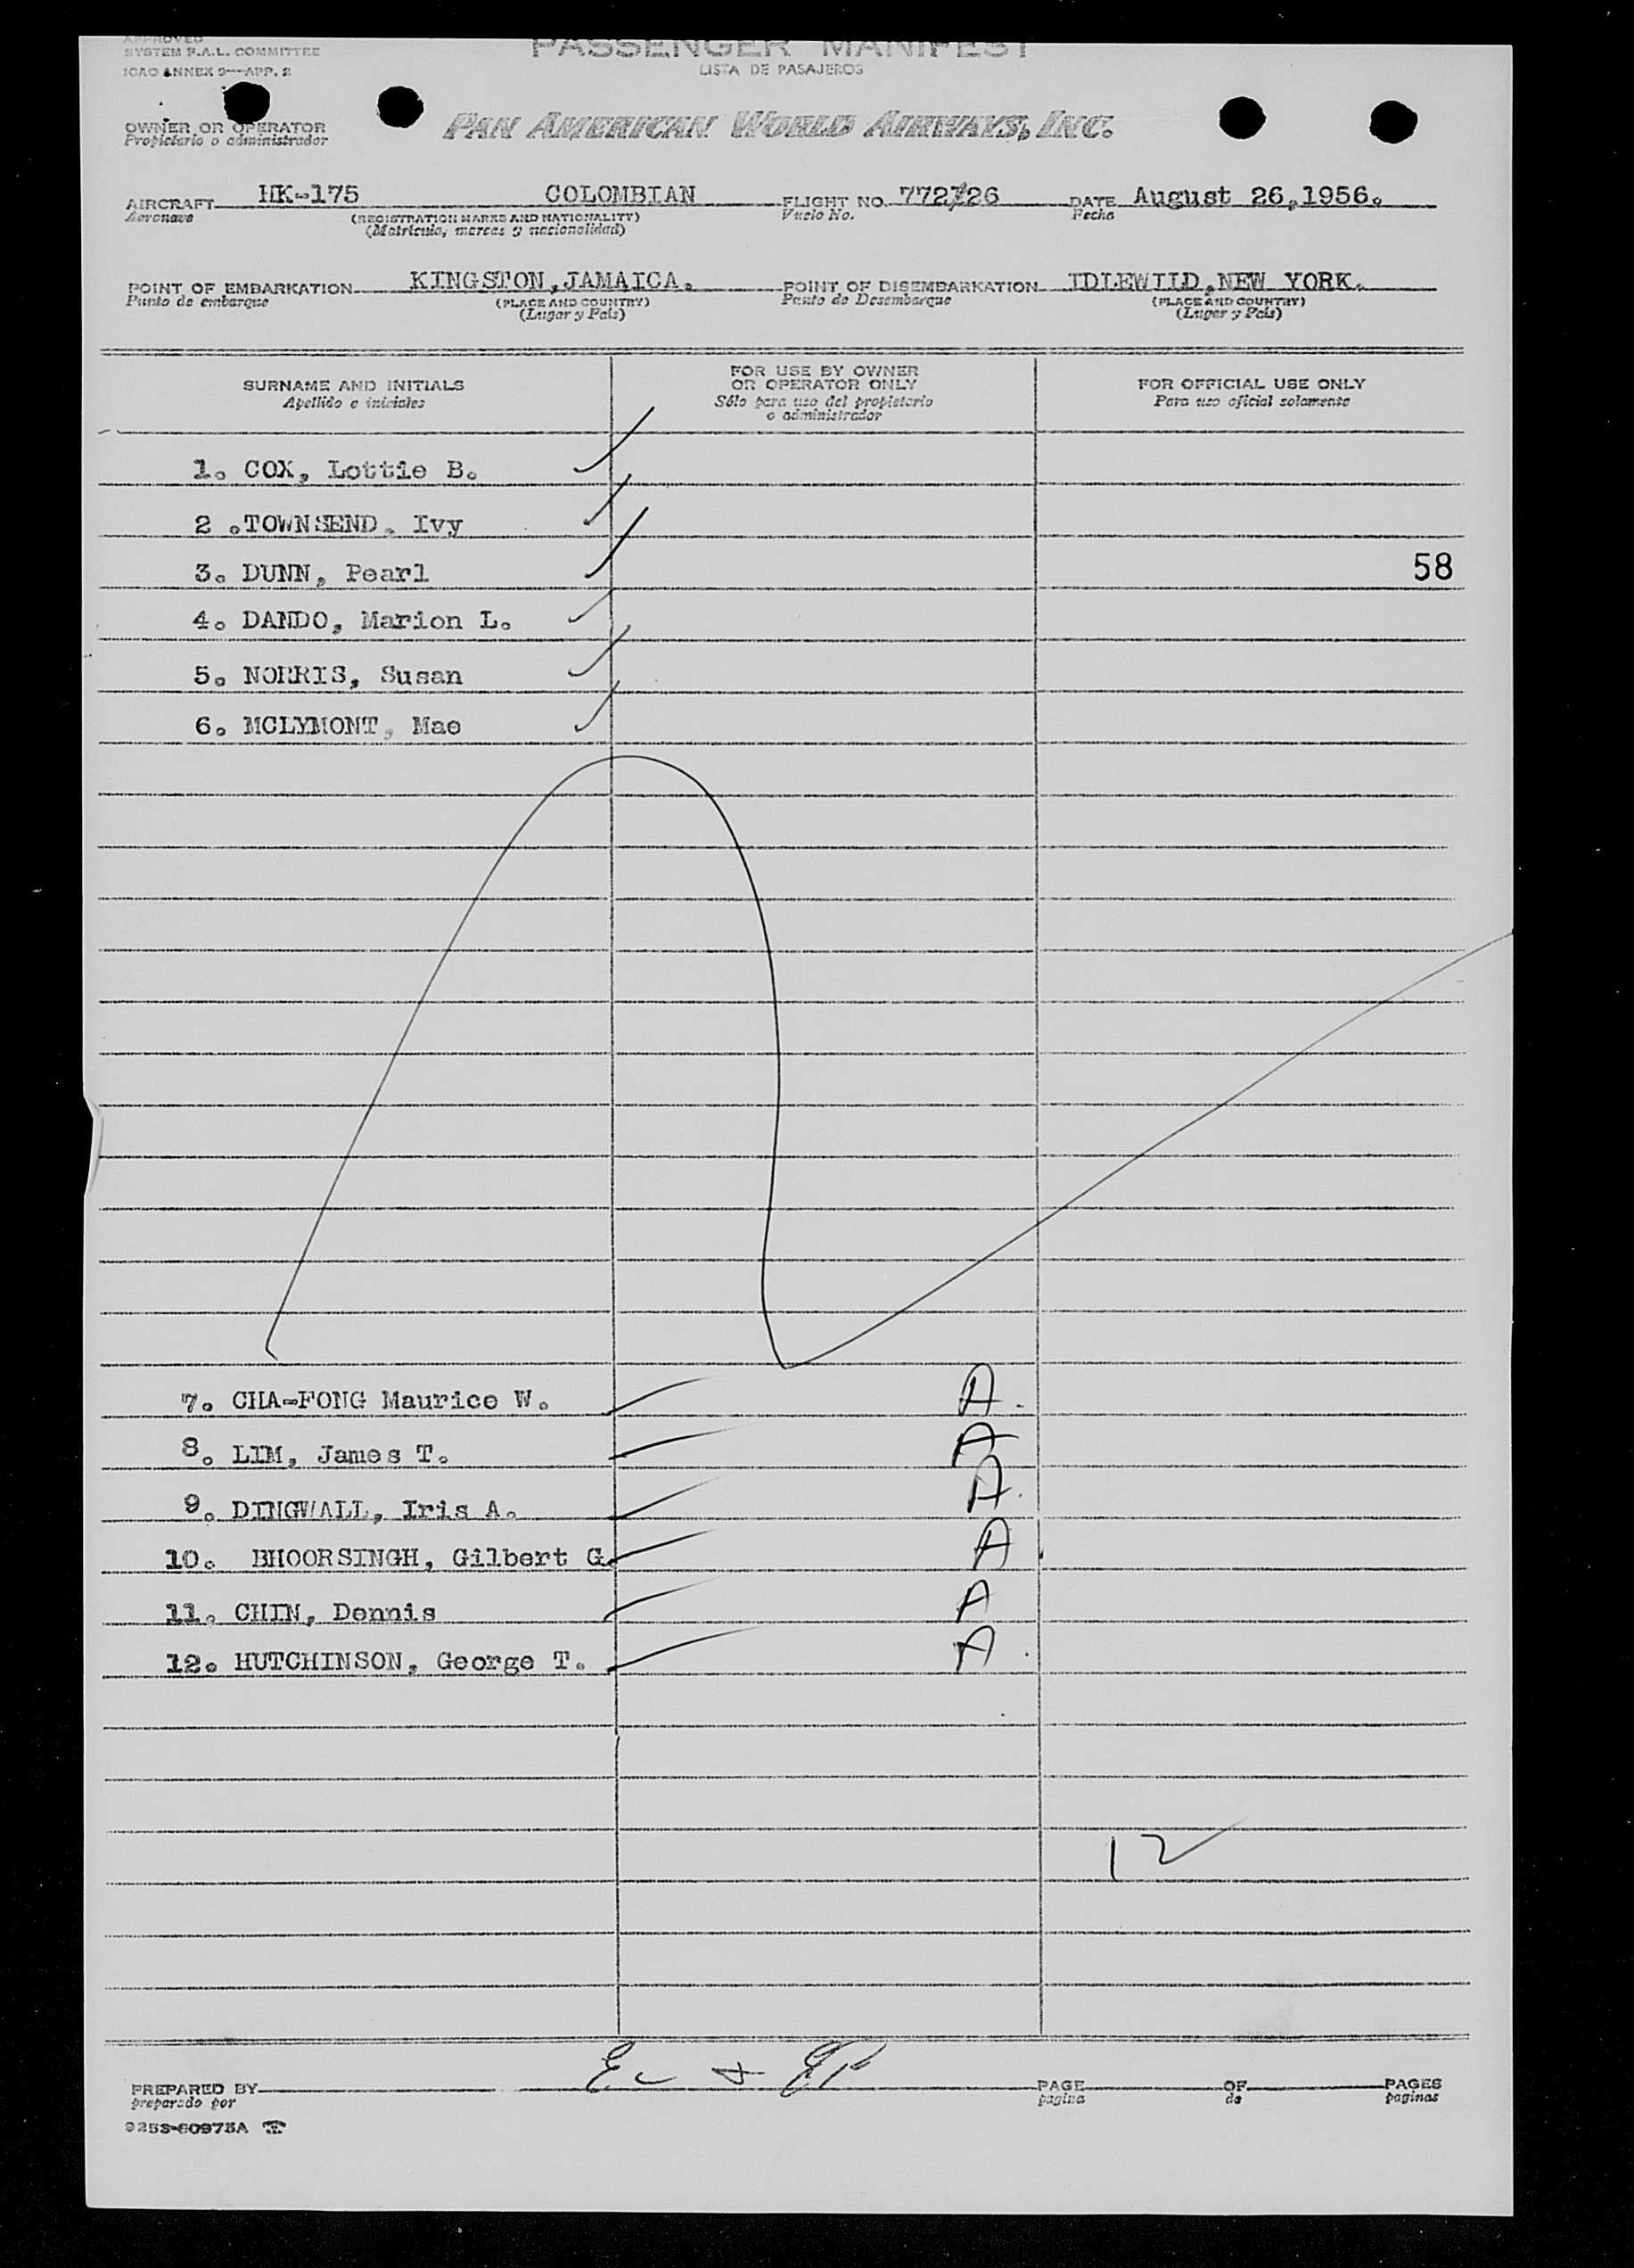 APPROVED
SYSTEM P.A.L. COMMITTEE
ICAO ANNEX 9—APP. 2
PASSENGER MANIFEST
LISTA DE PASAJEROS
OWNER OR OPERATOR
Propietario o administrador
PAN AMERICAN WORLD AIRWAYS, INC.
AIRCRAFT HK-175 COLOMBIAN FLIGHT NO. 772/26 DATE August 26,1956.
Aeronave (REGISTRATION MARKS AND NATIONALITY) Vuelo No. Fecha
(Matrícula, marcas y nacionalidad)
POINT OF EMBARKATION KINGSTON,JAMAICA. POINT OF DISEMBARKATION IDLEWILD,NEW YORK.
Punto de embarque (PLACE AND COUNTRY) Punto de Desembarque (PLACE AND COUNTRY)
(Lugar y País) (Lugar y País)
SURNAME AND INITIALS
Apellido e iniciales
FOR USE BY OWNER
OR OPERATOR ONLY
Sólo para uso del propietario
o administrador
FOR OFFICIAL USE ONLY
Para uso oficial solamente
1. COX, Lottie B.
2 .TOWNSEND, Ivy
3. DUNN, Pearl 58
4. DANDO, Marion L.
5. NORRIS, Susan
6. MCLYMONT, Mae
7. CHA-FONG Maurice W. A.
8. LIM, James T. A
9. DINGWALL, Iris A. A.
10. BHOORSINGH, Gilbert G. A
11. CHIN, Dennis A
12. HUTCHINSON, George T. A.
12
PREPARED BY PAGE OF PAGES
preparado por pagina de paginas